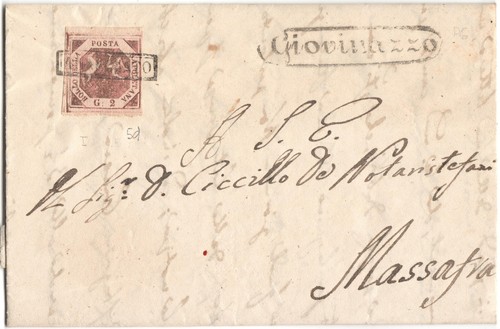 POSTA
NAPOLETANA
G. 2
ANNULLATO
Giovinazzo
I
A S. E.
Il Sig.r D. Ciccillo De Notaristefani
Massafra